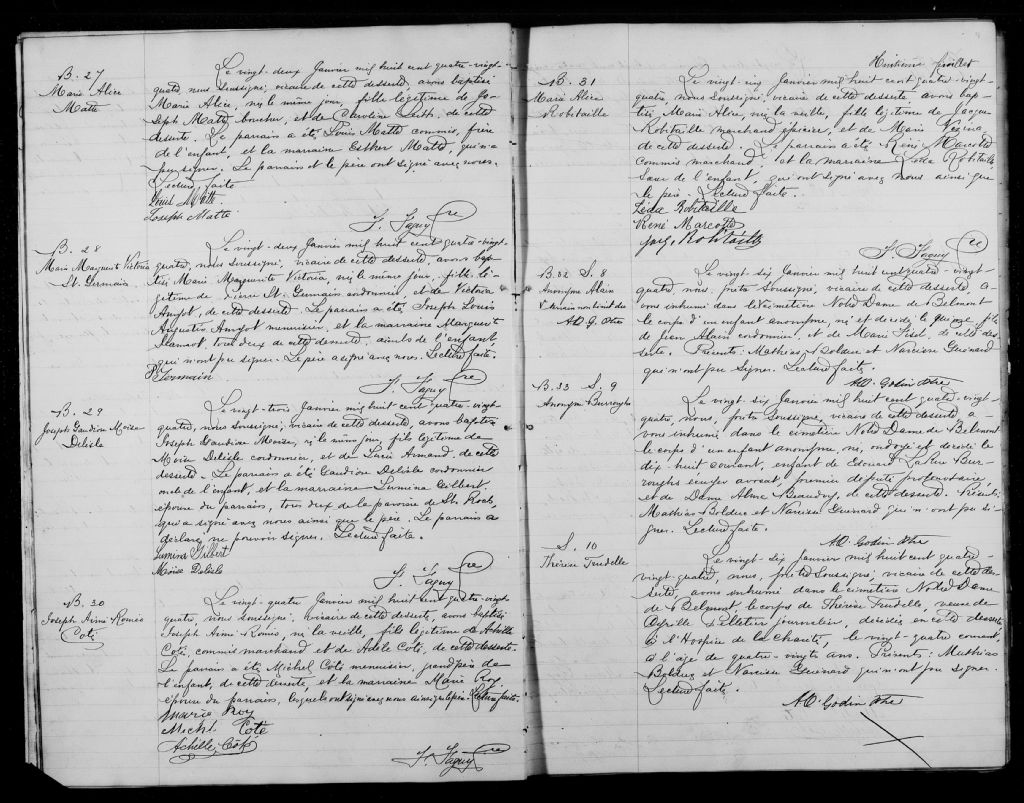 B. 27
Marie Alice
Matte
Le vingt-deux Janvier mil huit cent quatre-vingt-
quatre, nous soussigné, vicaire de cette desserte, avons baptisé
Marie Alice, née le même jour, fille légitime de Jo-
seph Matte boucher, et de Caroline de cette
desserte. Le parrain a été Louis Matte commis, frère
de l'enfant, et la marraine Esther Matte, qui n'a
pu signer. Le parrain et le père ont signé avec nous.
Lecture faite.
Louis Matte
Joseph Matte
F. Faguy Ptre
B. 28
Marie Marguerite Victoria
St. Germain
Le vingt-deux Janvier mil huit cent quatre-vingt-
quatre, nous soussigné, vicaire de cette desserte, avons bap-
tisé Marie Marguerite Victoria, née le même jour, fille lé-
gitime de Pierre St. Germain cordonnier, et de Victoria
Amyot, de cette desserte. Le parrain a été Joseph Louis
Augustin Amyot menuisier, et la marraine Marguerite
tous deux de cette desserte, aïeuls de l'enfant,
qui n'ont pu signer. Le père a signé avec nous. Lecture faite.
P. Germain
F. Faguy Ptre
B. 29
Joseph Gaudiose Moïse
Delisle
Le vingt-trois Janvier mil huit cent quatre-vingt-
quatre, nous soussigné, vicaire de cette desserte, avons baptisé
Joseph Gaudiose Moïse, né le même jour, fils légitime de
Moïse Delisle cordonnier, et de Marie Armand, de cette
desserte. Le parrain a été Gaudiose Delisle cordonnier
oncle de l'enfant, et la marraine Gilbert,
épouse du parrain, tous deux de la paroisse de St. Roch,
qui a signé avec nous ainsi que le père. Le parrain a
déclaré ne pouvoir signer. Lecture faite.
Gilbert
Moïse Delisle
F. Faguy Ptre
B. 30
Joseph Aimé Roméo
Coté
Le vingt-quatre Janvier mil huit cent quatre-vingt-
quatre, nous soussigné, vicaire de cette desserte, avons baptisé
Joseph Aimé Roméo, né la veille, fils légitime de Achille
Coté, commis marchand et de Adèle Coté, de cette desserte.
Le parrain a été Michel Coté menuisier, grand père de
l'enfant, de cette desserte et la marraine Marie Roy
épouse du parrain, lesquels ont signé avec nous ainsi que le père. Lecture faite.
Marie Roy
Michl Coté
Achille Coté
F. Faguy Ptre
B. 31
Marie Alice
Robitaille
Huitième feuillet
Le vingt-cinq Janvier mil huit cent quatre-vingt-
quatre, nous soussigné, vicaire de cette desserte, avons bap-
tisé Marie Alice, née la veille, fille légitime de Jacques
Robitaille marchand épicier, et de Marie Vézina,
de cette desserte. Le parrain a été René Marcotte
commis marchand et la marraine Léda Robitaille
Soeur de l'enfant, qui ont signé avec nous ainsi que
le père. Lecture faite.
Léda Robitaille
René Marcotte
Jacq. Robitaille
F. Faguy Ptre
B. 32 S. 8
Anonyme Alain
A.O. G. Ptre
Le vingt-six Janvier mil huit cent quatre-vingt-
quatre nous, prêtre soussigné, vicaire de cette desserte, a-
vons inhumé dans le cimetière Notre Dame de Belmont
le corps d'un enfant anonyme, né et décédé le quinze, fils
de Alain cordonnier, et de Marie de cette des-
serte. Présents: Mathias Bolduc et Narcisse Guénard
qui n'ont pu signer. Lecture faite.
A.O. Godin Ptre
B. 33 S. 9
Anonyme Burroughs
Le vingt-six Janvier mil huit cent quatre-vingt-
quatre, nous, prêtre soussigné, vicaire de cette desserte a-
vons inhumé, dans le cimetière Notre Dame de Belmont
le corps d'un enfant anonyme, né, ondoyé et décédé le
dix-huit courant, enfant de Edouard LaRue Bur-
roughs écuyer avocat, premier député protonotaire,
et de Dame Alma Beaudry, de cette desserte. Présents:
Mathias Bolduc et Narcisse Guénard qui n'ont pu si-
gner. Lecture faite.
A.O. Godin Ptre
S. 10
Thérèse Trudelle
Le vingt-six Janvier mil huit cent quatre-
vingt-quatre, nous, prêtre soussigné, vicaire de cette des-
serte, avons inhumé dans le cimetière Notre Dame
de Belmont, le corps de Thérèse Trudelle, veuve de
Pelletier journalier, décédée en cette desserte
à l'Hospice de la Charité, le vingt-quatre courant,
à l'âge de quatre-vingts ans. Présents: Mathias
Bolduc et Narcisse Guénard qui n'ont pu signer.
Lecture faite.
A.O. Godin Ptre